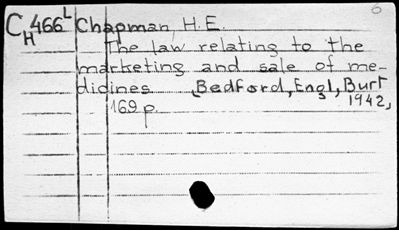 CH466L Chapman, H.E.
The law relating to the
marketing and sale of me-
dicines Bedford, Engl, Burt
1942,
169 p.